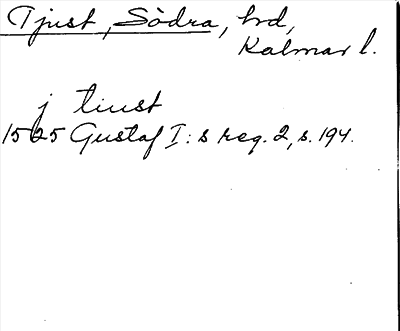 Tjust, Södra, hd,
Kalmar l.
j tiust
1525 Gustaf I:s reg. 2, s. 194.